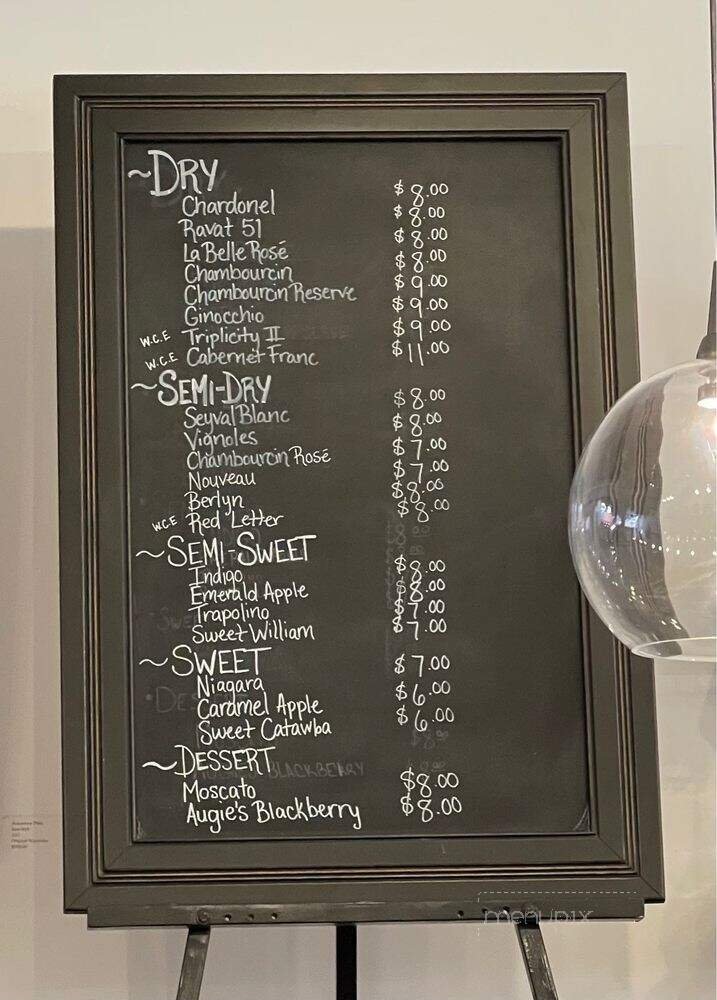 ~DRY
Chardonel $8.00
Ravat 51 $8.00
La Belle Rosé $8.00
Chambourcin $8.00
Chambourcin Reserve $9.00
Ginocchio $9.00
W.C.E Triplicity II $9.00
W.C.E Cabernet Franc $11.00
~SEMI-DRY
Seyval Blanc $8.00
Vignoles $8.00
Chambourcin Rosé $7.00
Nouveau $7.00
Berlyn $8.00
WCE Red Letter $8.00
~SEMI-SWEET
Indigo $8.00
Emerald Apple $8.00
Trapolino $7.00
Sweet William $7.00
~SWEET
Niagara $7.00
Caramel Apple $6.00
Sweet Catawba $6.00
~DESSERT
Moscato $8.00
Augie's Blackberry $8.00
menupix